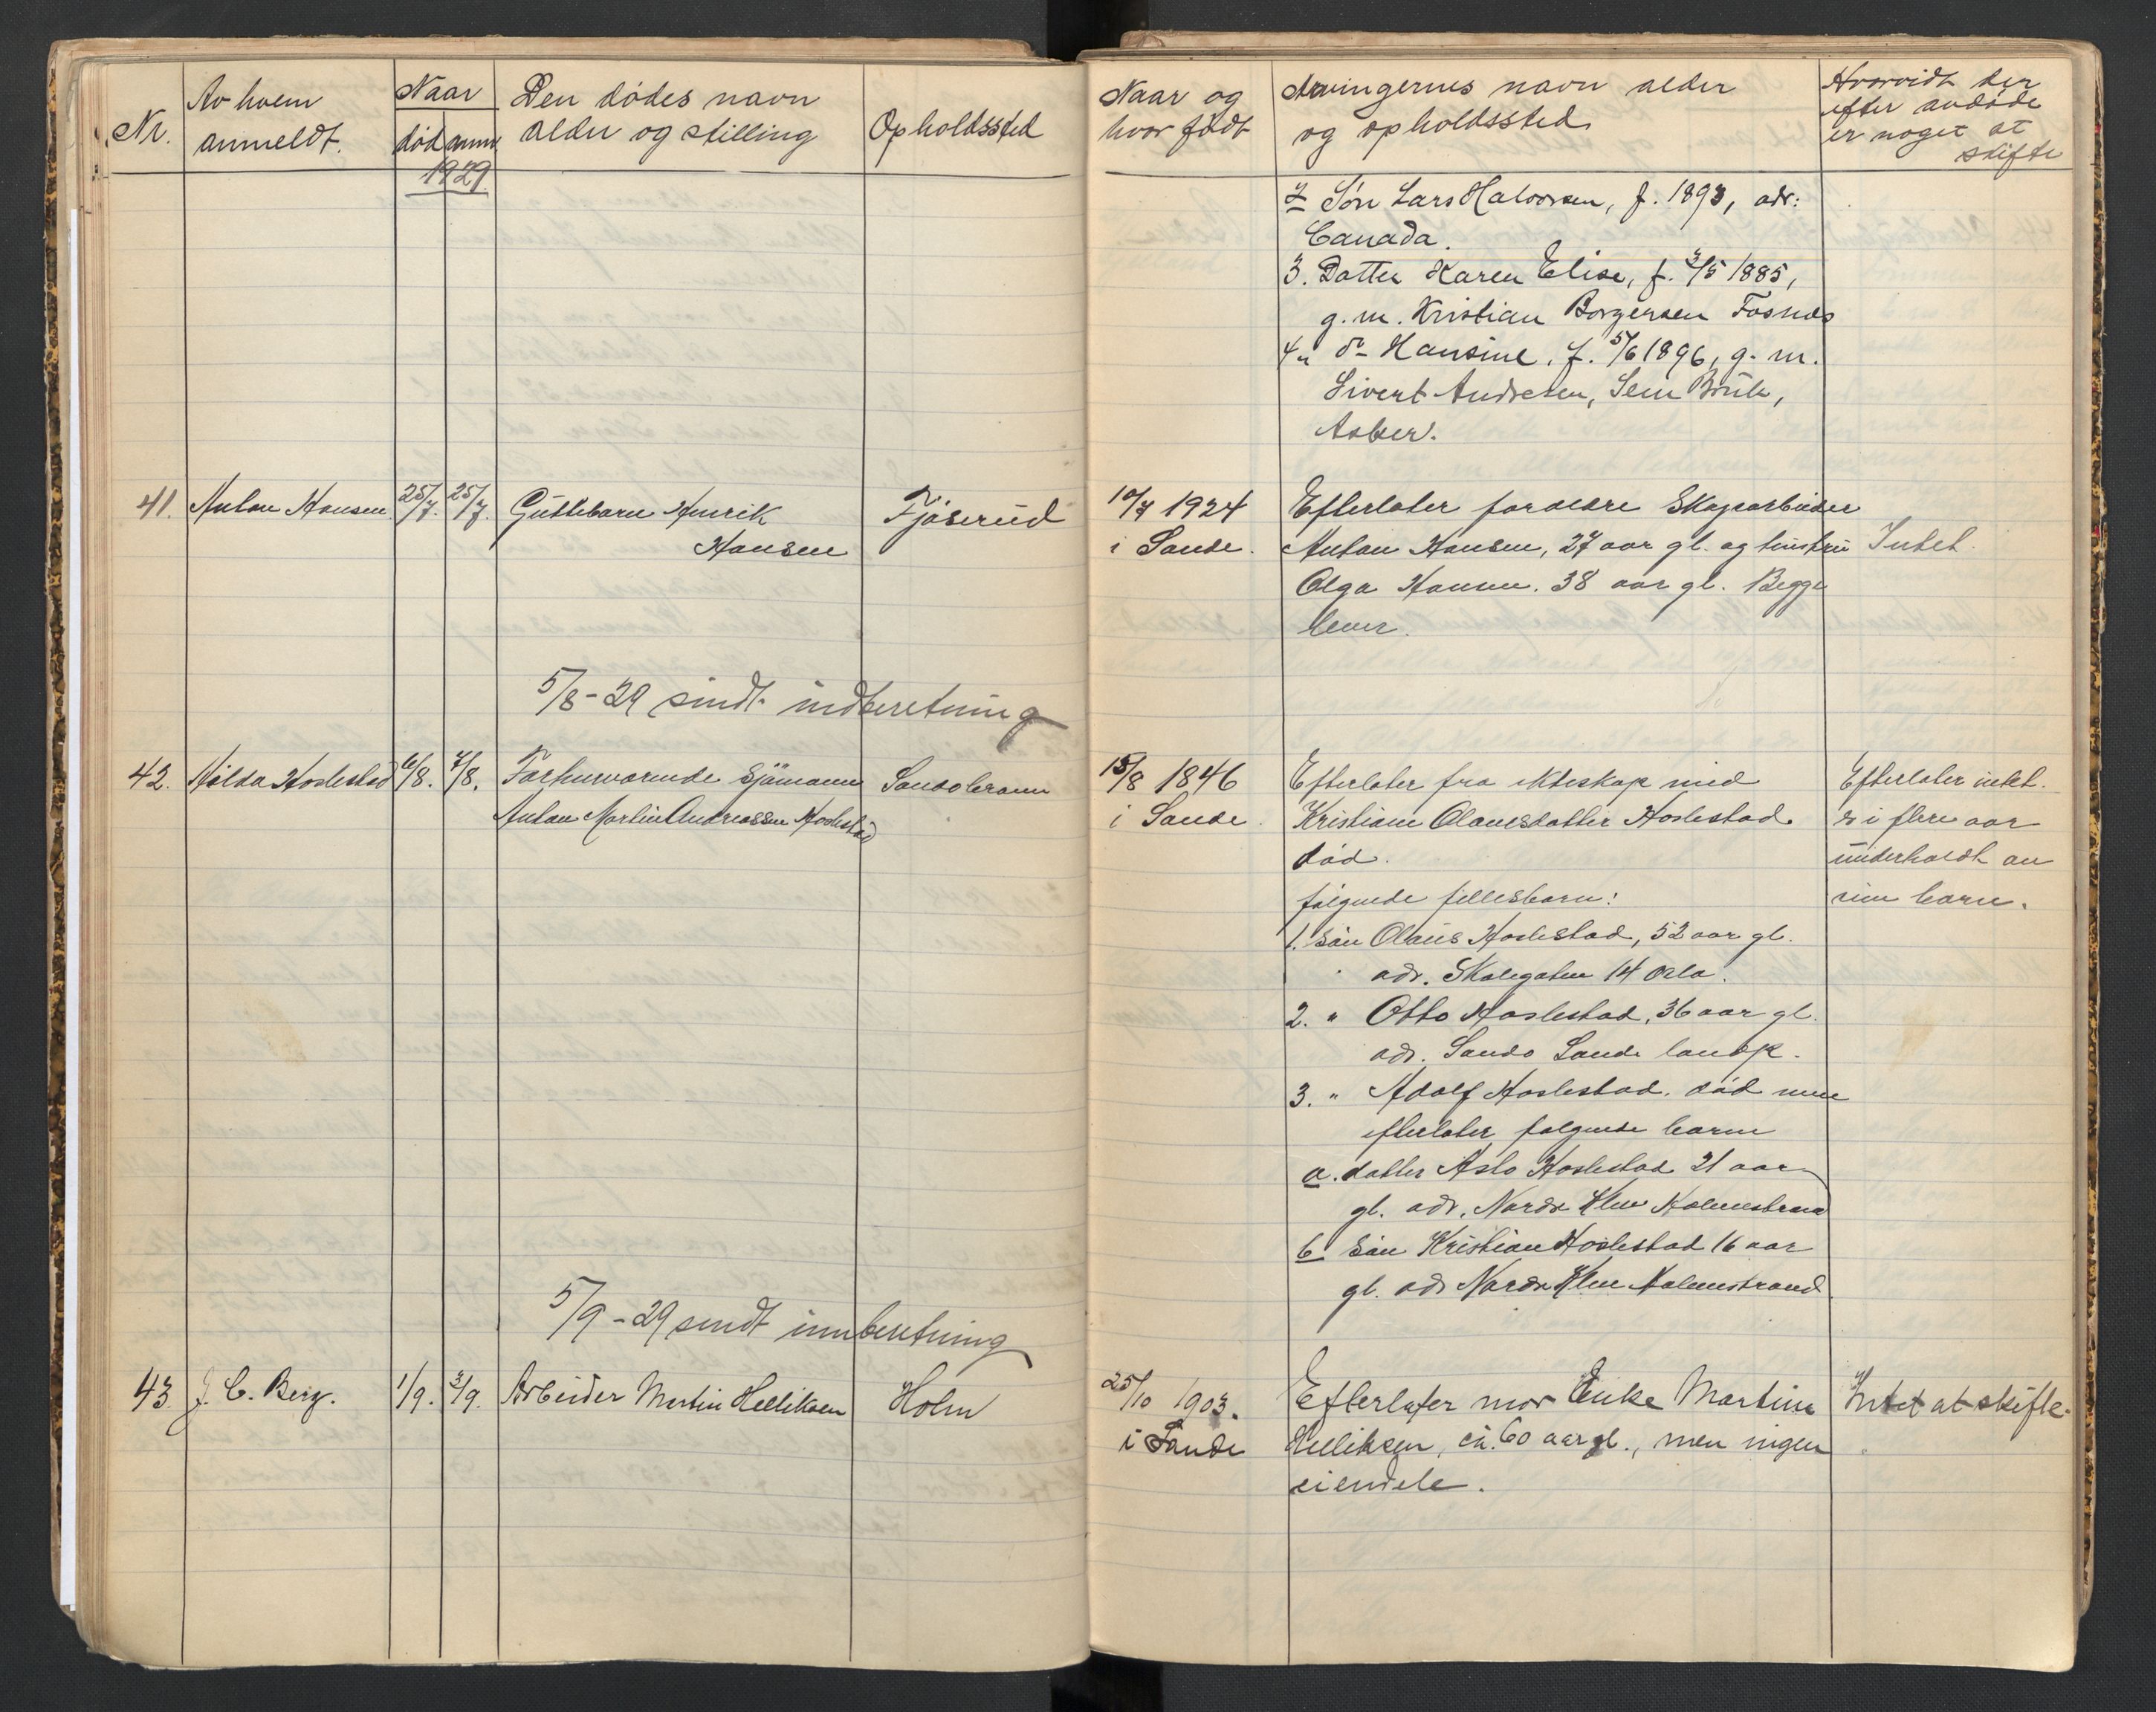 Nr.
Av hvem
anmeldt.
Naar
død anm
1929.
Den dødes navn
alder og stilling
Opholdssted
Naar og
hvor født
Arvingernes navn alder
og opholdssted
Hvorvidt der
efter avdøde
er noget at
skifte
2 Søn Lars Halvorsen, f. 1893, adr:
Canada.
3. Datter Karen Elise, f. 3/5 1885,
g. m. Kristian Borgersen Fosnes
4 " do - Hansine, f. 5/6 1896, g. m.
Sivert Andresen, Sem Bruk,
Asker.
41. Anton Hansen 25/7. 25/7. Guttebarn Henrik
Hansen
Fjøserud
10/7 1924
i Sande.
Efterlater forældre Skogsarbeider
Anton Hansen, 27 aar gl. og hustru
Olga Hansen. 38 aar gl. Begge
lever.
Intet.
5/8-29 sendt indberetning
42. Hilda Haslestad 6/8. 7/8. Forhenværende Sjømann
Anton Martin Andreassen Haslestad
Sandsbraun
15/8 1846
i Sande.
Efterlater fra ekteskap med
Kristiane Olavesdatter Haslestad
død.
følgende fellesbarn:
1. Søn Olaus Haslestad, 52 aar gl.
adr. Skolegaten 14 Oslo.
2. " Otto Haslestad, 36 aar gl.
adr. Sands Sande landp.
3. " Adolf Haslestad. død men
efterlater følgende barn
a. datter Aslo Haslestad 21 aar
gl. adr. Nordre Holmestrand
b Søn Kristian Haslestad 16 aar
gl. adr Nordre Holmestrand.
Efterlater intet.
er i flere aar
underholdt av
sine barn.
5/9-29 sendt innberetning
43. J. C. Berg. 1/9. 3/9. Arbeider Martin Helliksen
Holm
25/10 1903.
i Sande
Efterlater mor Enke Martine
Helliksen, ca. 60 aar gl., men ingen
eiendele.
Intet at skifte.